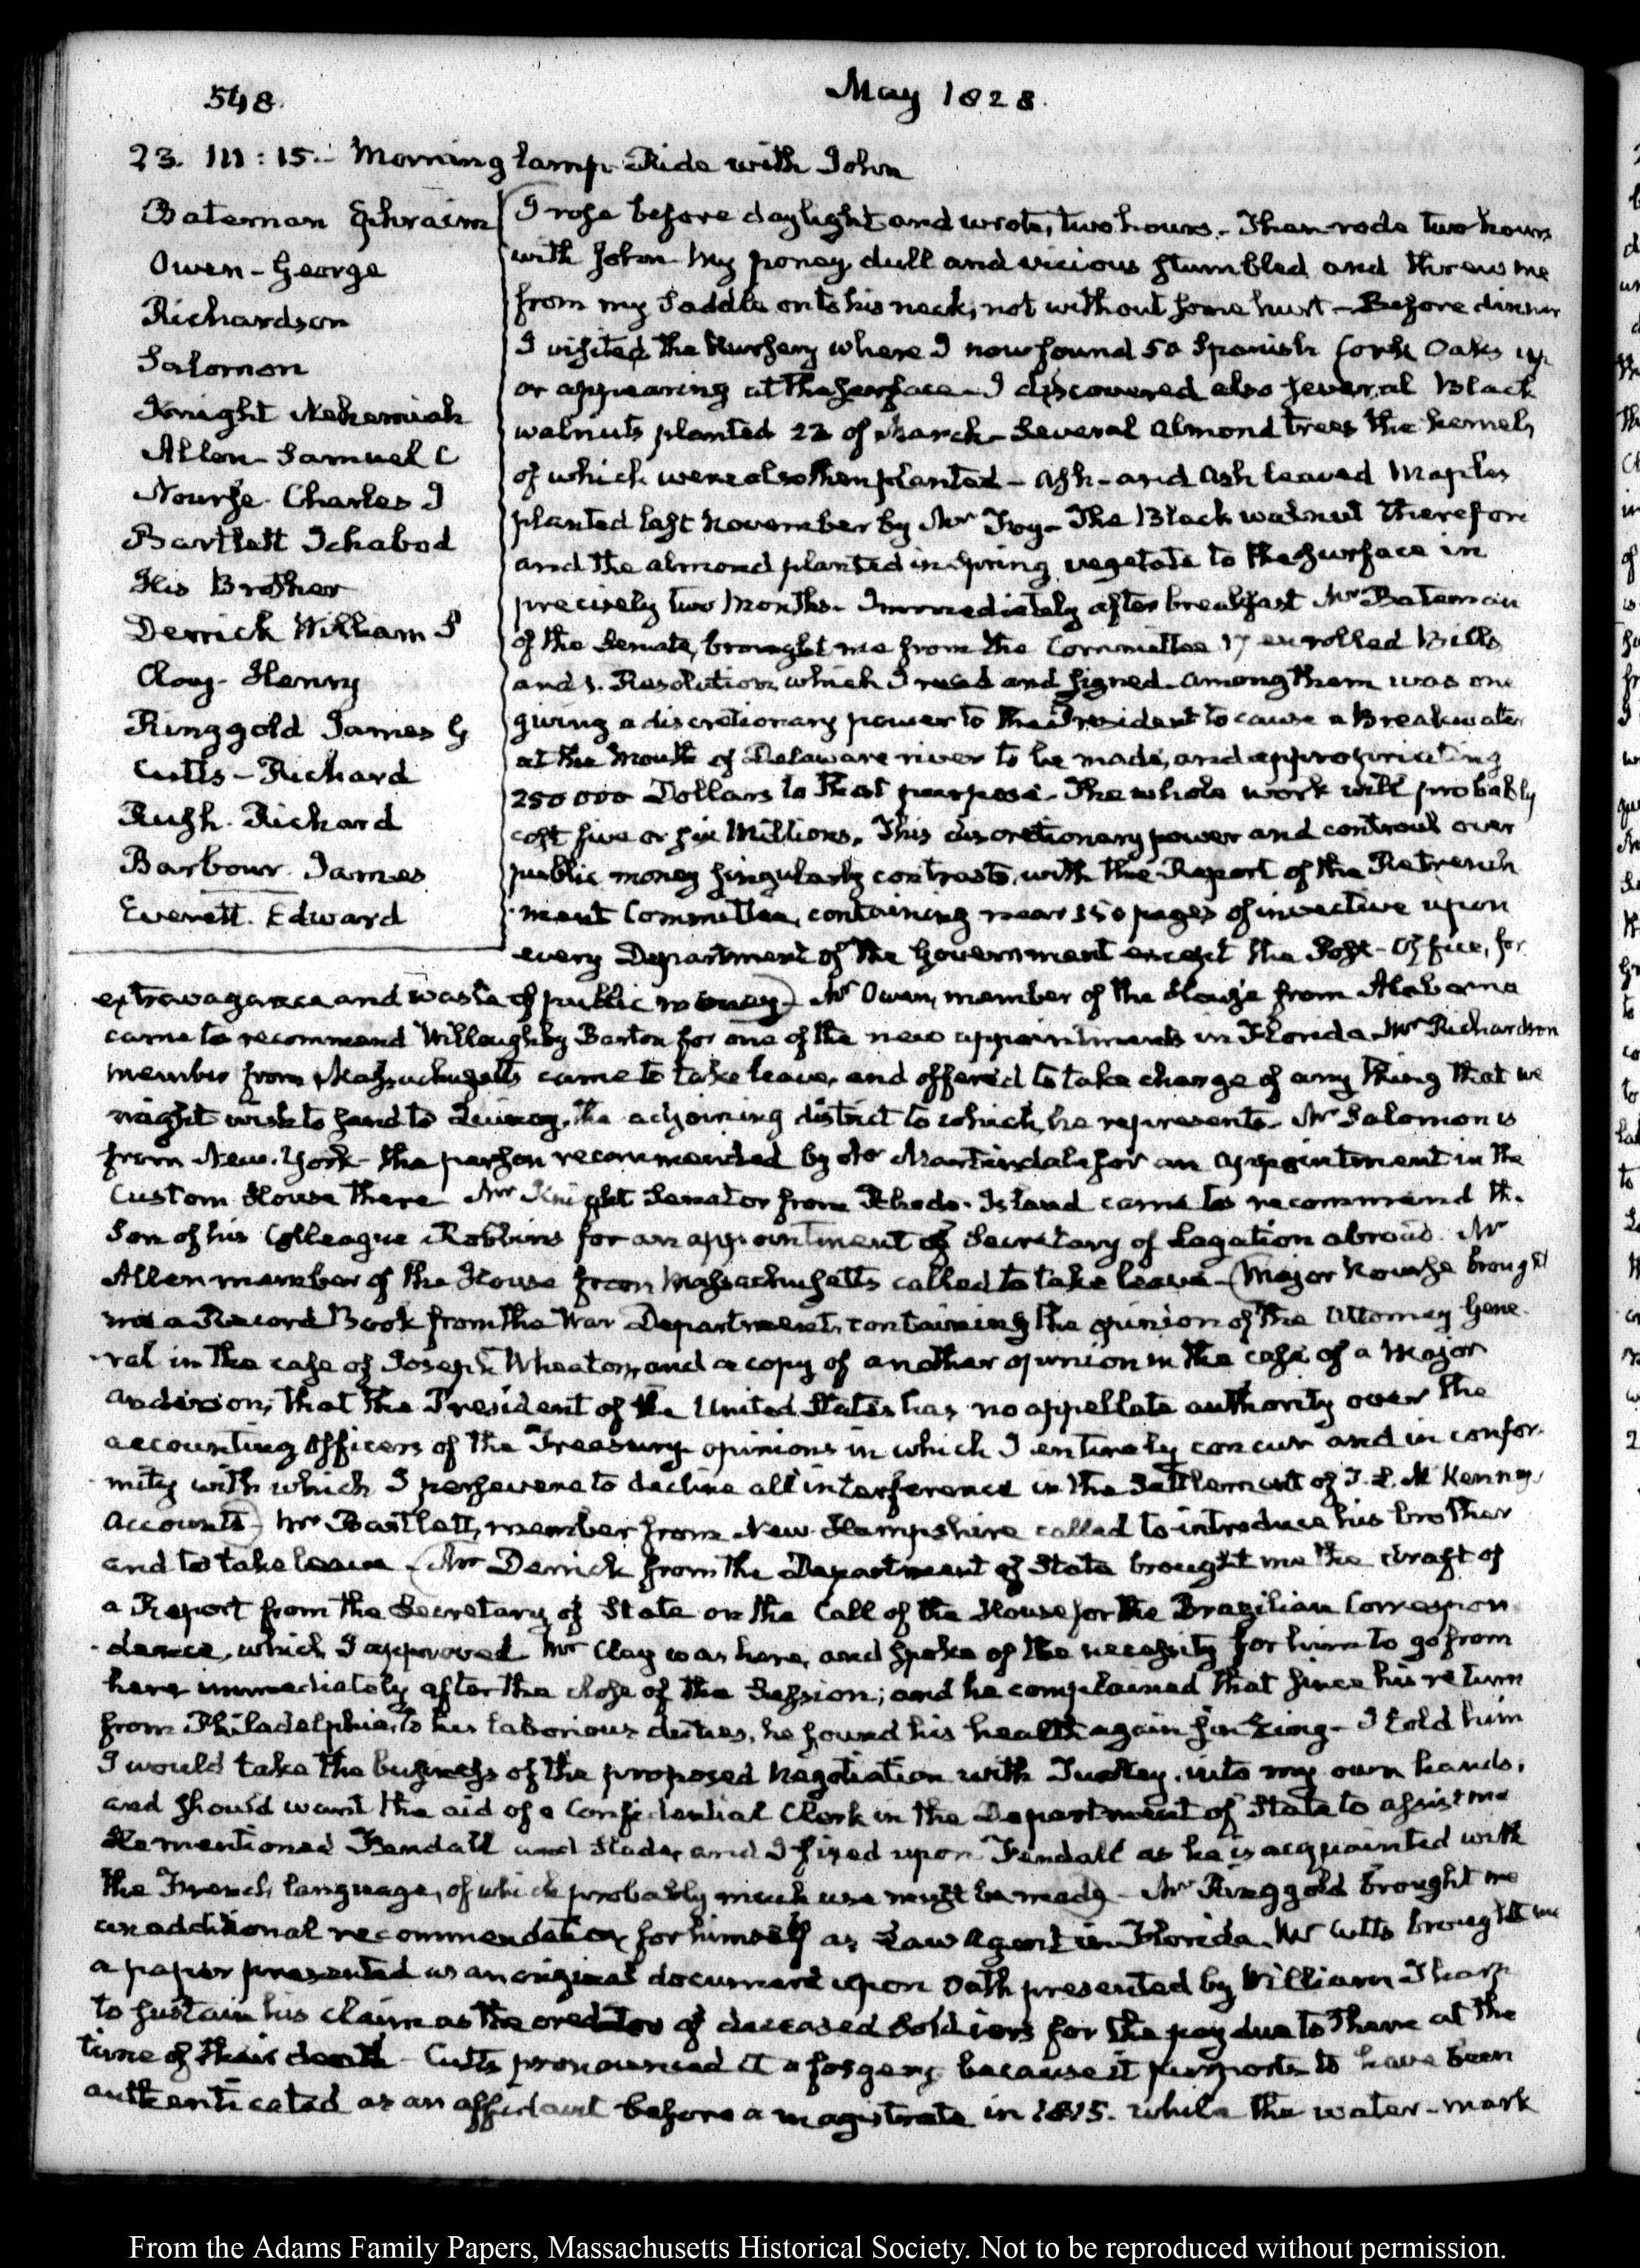 548.
May 1828.
23. III:15. Morning lamp. Ride with John
Bateman Ephraim
Owen - George
Richardson
Salomon
Knight Nehemiah
Allen - Samuel C
Nourse. Charles J
Bartlett Ichabod
His Brother
Derrick William S
Clay - Henry
Ringgold James G
Cutts - Richard
Rush. Richard
Barbour. James
Everett. Edward
I rose before daylight and wrote, two hours. Then rode two hours
with John. My poney, dull and vicious stumbled and threw me
from my Saddle onto his neck, not without some hurt - Before dinner
I visited the Nursery where I now found 50 Spanish Cork Oaks up
or appearing at the surface. I discovered also several Black
walnuts planted 22 of March - Several almond trees the kernels
of which were also then planted - Ash - and Ash leaved Maples
planted last November by Mr Foy - The Black walnut therefore
and the almond planted in Spring vegetate to the surface in
precisely two Months. Immediately after breakfast Mr Bateman
of the Senate, brought me from the Committee 17 enrolled Bills
and 1. Resolution, which I read and signed. among them was one
giving a discretionary power to the President to cause a Breakwater
at the mouth of Delaware river to be made, and appropriating
250 000 Dollars to that purpose. The whole work will probably
cost five or six Millions. This discretionary power and controul over
public money singularly contrasts, with the Report of the Retrench
-ment Committee, containing near 150 pages of invective upon
every Department of the Government except the Post-Office, for
extravagance and waste of public money) - Mr Owen, member of the House from Alabama
came to recommend Willoughby Barton for one of the new appointments in Florida. Mr Richardson
member from Massachusetts came to take leave, and offered to take charge of any thing that we
might wish to send to Quincy, the adjoining district to which, he represents. Mr Salomon is
from New-York - the person recommended by Mr Martindale for an appointment in the
Custom House there Mr Knight Senator from Rhode-Island came to recommend the
Son of his Colleague Robbins for an appointment of Secretary of Legation abroad. Mr
Allen member of the House from Massachusetts called to take leave - (Major Nourse brought
me a Record Book from the War Department, containing the opinion of the Attorney Gene
-ral in the case of Joseph Wheaton, and a copy of another opinion in the case of a Major
anderson; that the President of the United States has no appellate authority over the
accounting Officers of the Treasury opinions in which I entirely concur and in confor
-mity with which I persevere to decline all interference in the Settlement of T. L. McKenney's
Accounts) - Mr Bartlett, member from New Hampshire called to introduce his brother
and to take leave - (Mr Derrick from the Department of State brought me the draft of
a Report from the Secretary of State on the Call of the House for the Brazilian Correspon
-dence, which I approved Mr Clay was here, and spoke of the necessity for him to go from
here immediately after the close of the Session; and he complained that since his return
from Philadelphia, to his laborious duties, he found his health again sinking - I told him
I would take the business of the proposed Negotiation with Turkey, into my own hands,
and should want the aid of a Confidential Clerk in the Department of State to assist me
He mentioned Fendall and Slade, and I fixed upon Fendall as he is acquainted with
the French language, of which probably much use might be made) - Mr Ringgold brought me
an additional recommendation for himself as Law Agent in Florida. Mr Cutts brought me
a paper presented as an original document upon Oath presented by William Tharp
to sustain his claim as the creditor of deceased Soldiers for the pay due to them at the
time of their death - Cutts pronounced it a forgery because it purports to have been
authenticated as an affidavit before a magistrate in 1815. while the water-mark
From the Adams Family Papers, Massachusetts Historical Society. Not to be reproduced without permission.